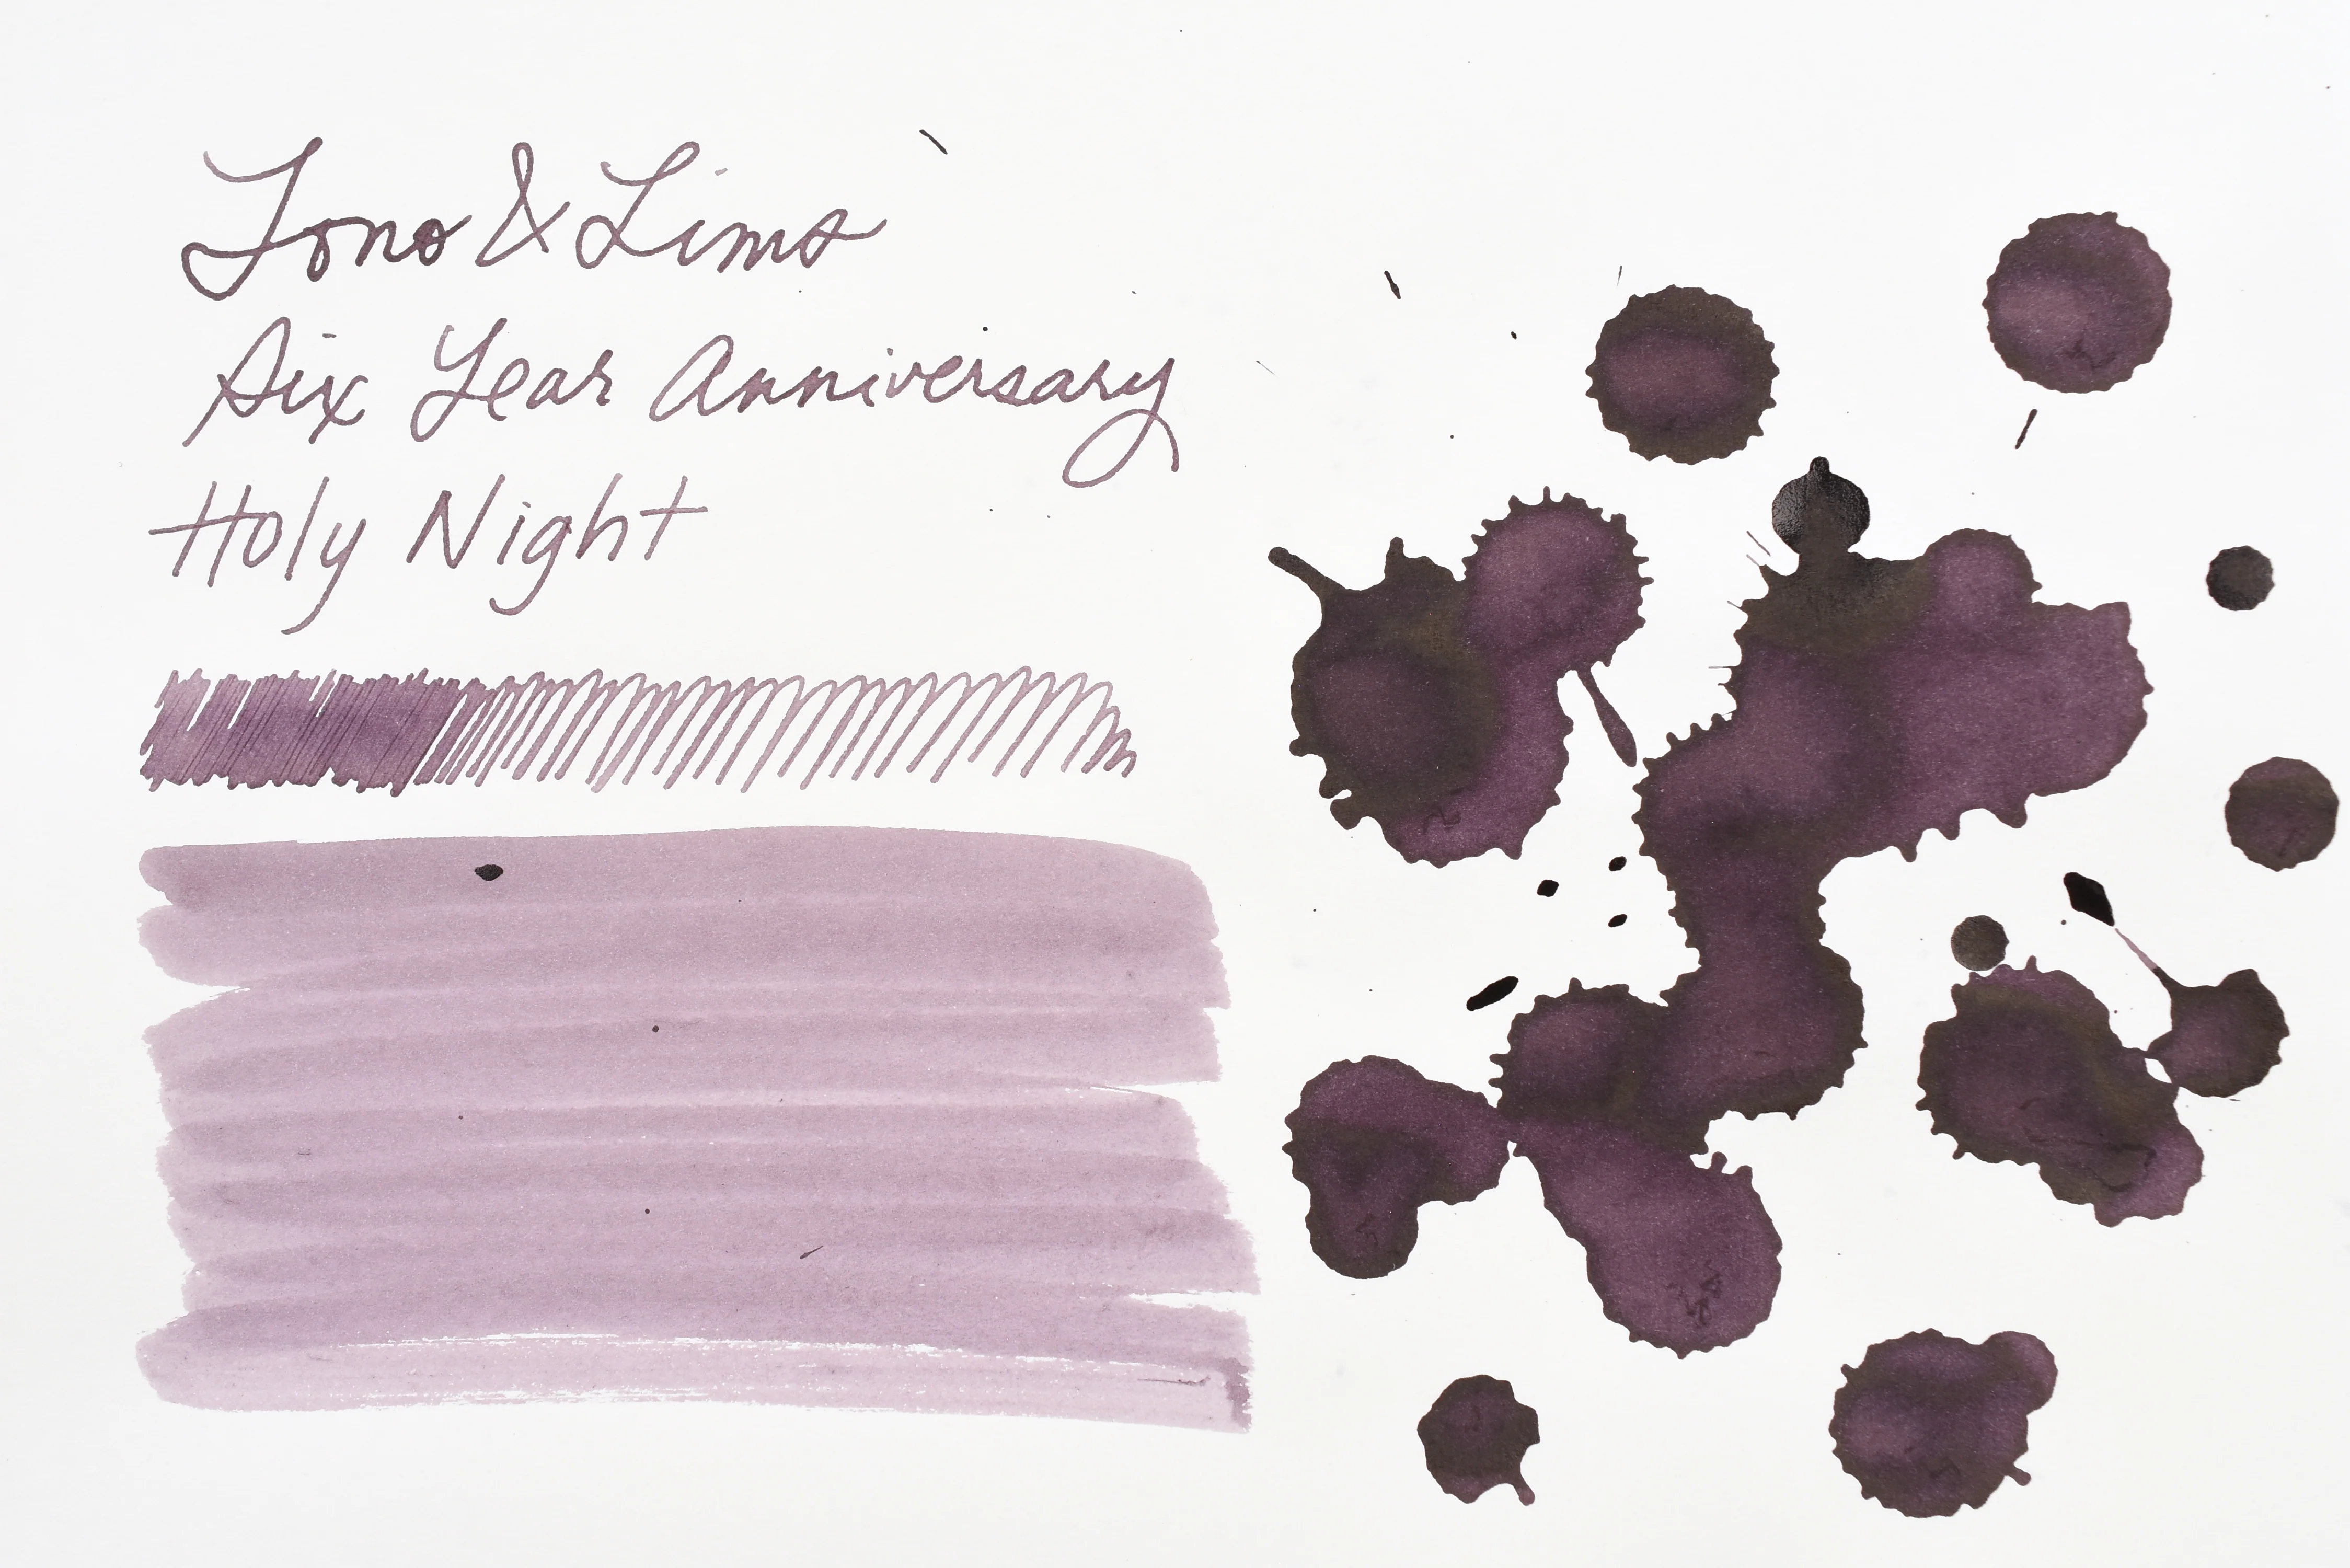 Tono & Lims
Six Year Anniversary
Holy Night